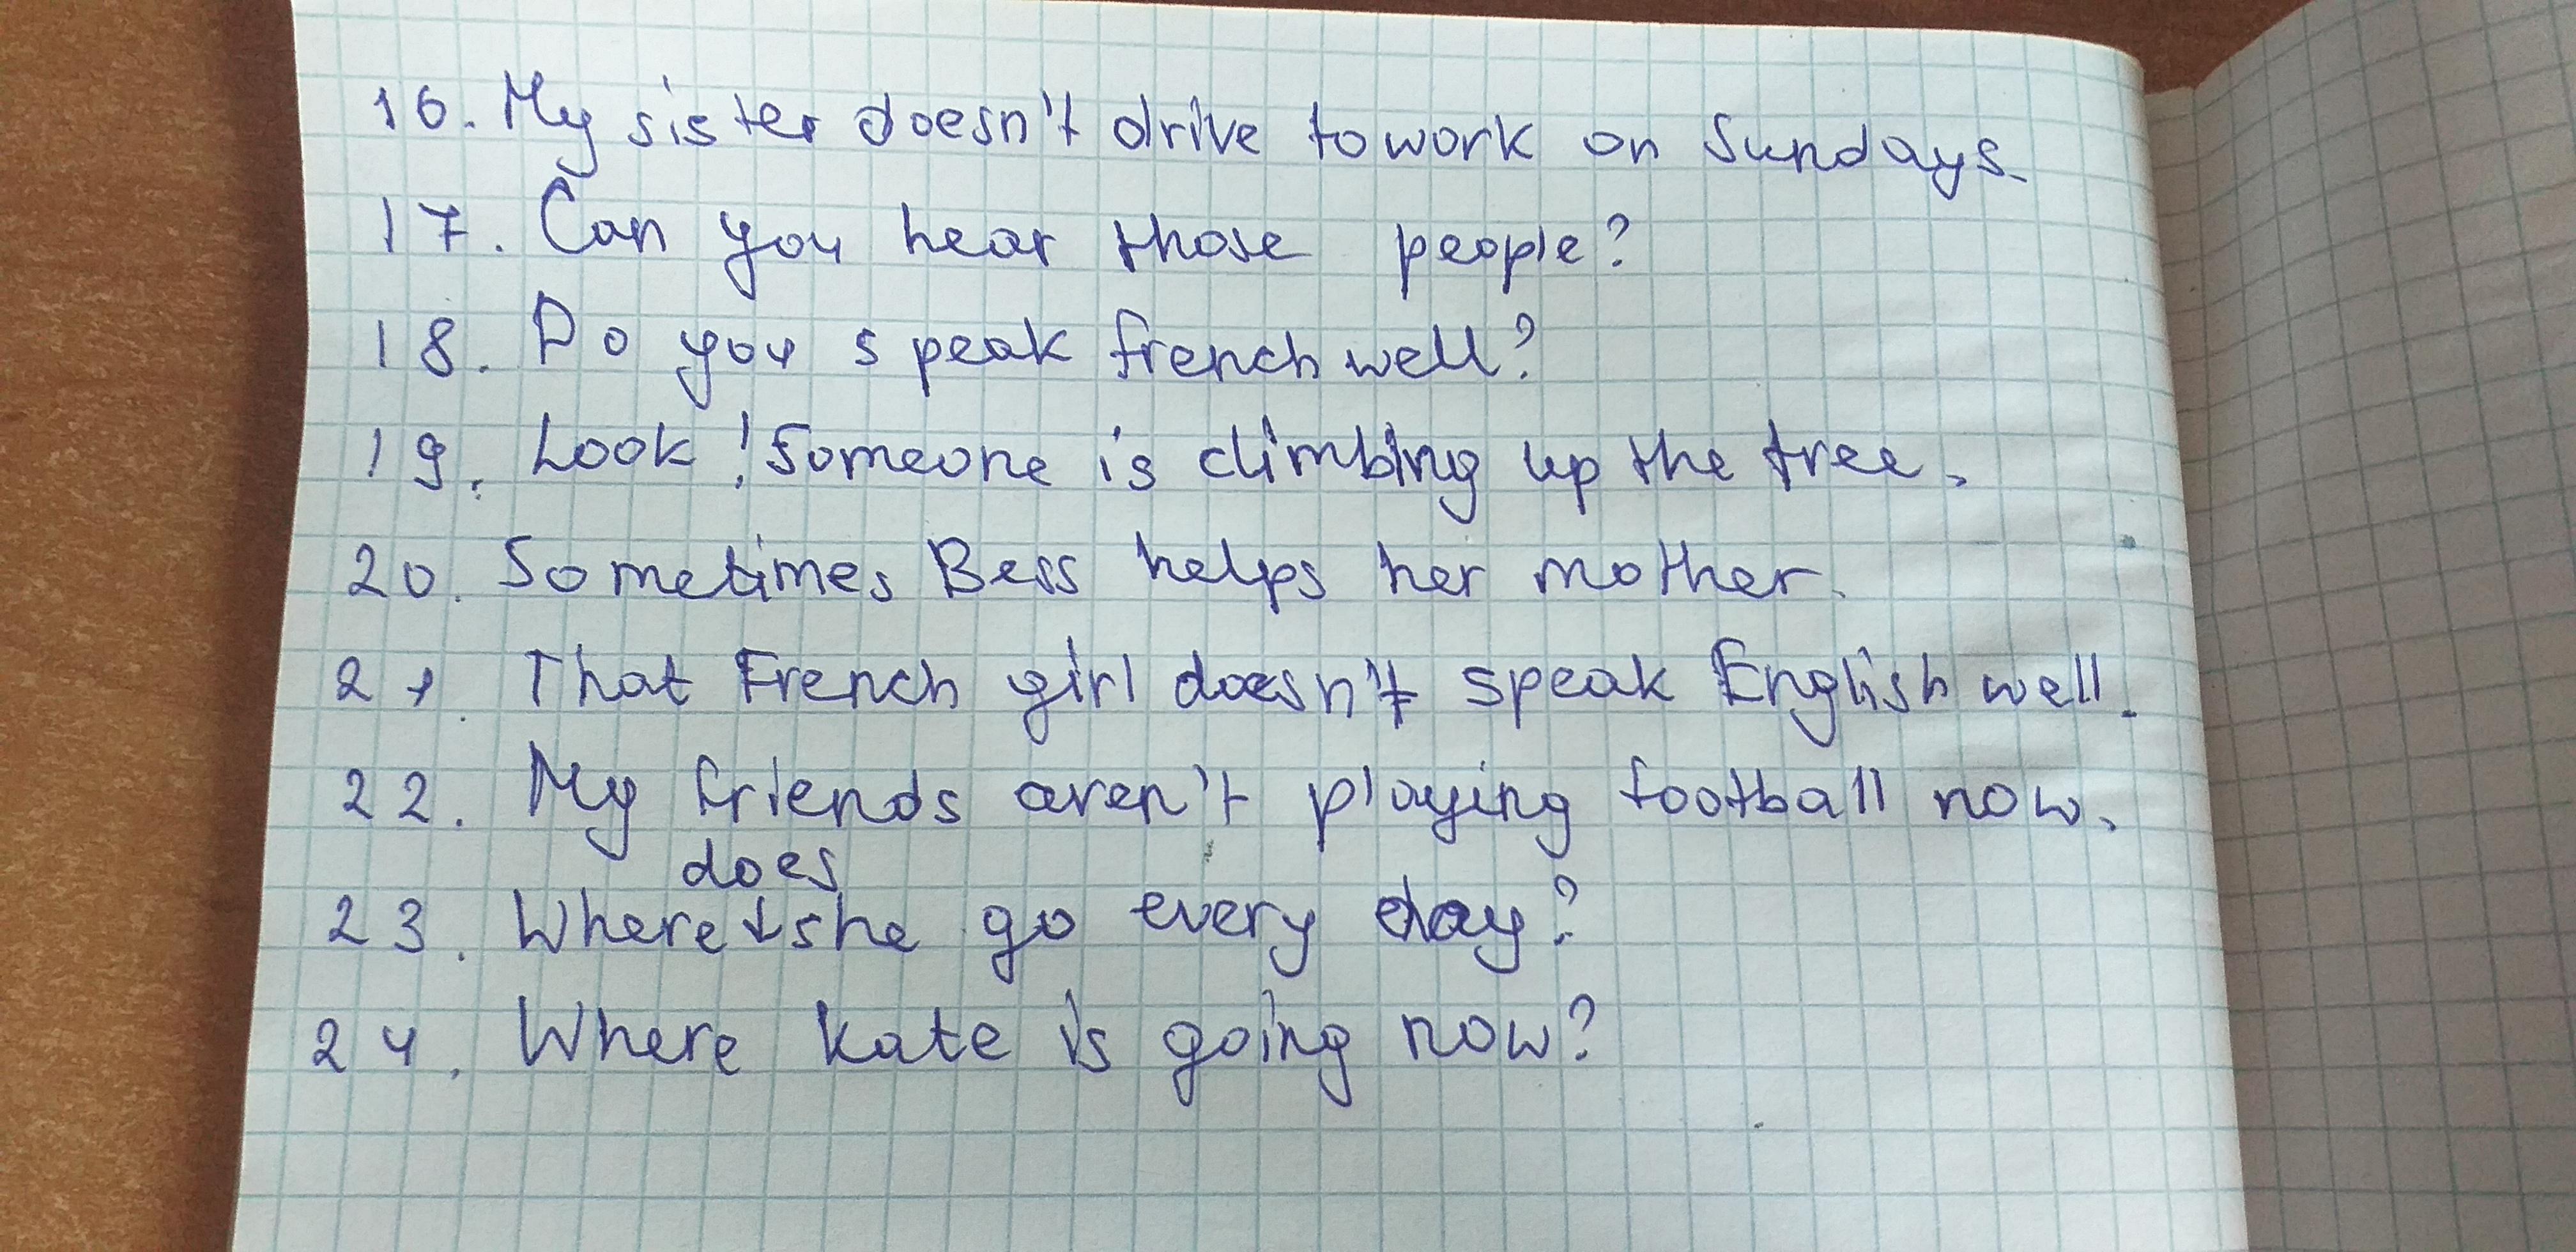 16. My sister doesn't drive to work on Sundays.
17. Can you hear those people?
18. Do you speak french well?
19. Look! Someone is climbing up the tree.
20. Sometimes Bess helps her mother.
21. That French girl doesn't speak English well.
22. My friends aren't playing football now.
does
23. Where she go every day?
24. Where Kate is going now?